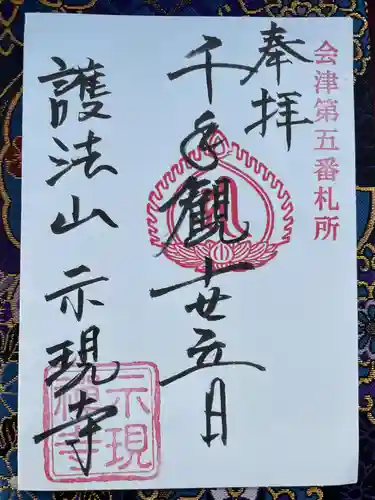 会津第五番札所
奉拝
千手観世音
護法山 示現寺
示現
禅寺